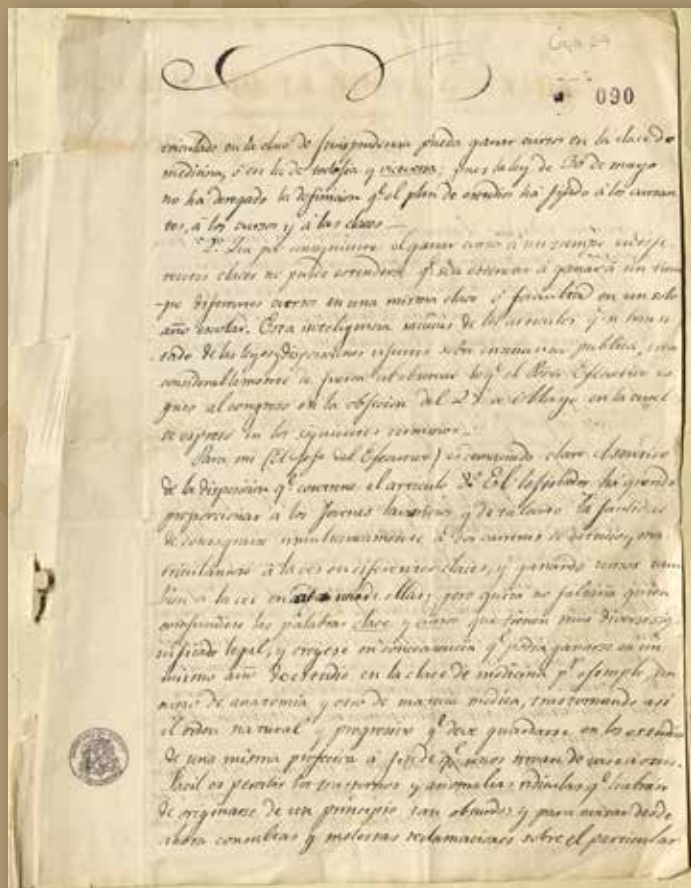 Caja 24
090
criculado en la clase de Jurisprudencia pueda ganar cursos en la clase de
medicina, ó en la de teolojia y viceversa; pues la ley de 30 de mayo
no ha derogado la definicion qe. el plan de estudios ha fijado á los cursan-
tes, á los cursos y á las clases.
2ª. Que por consiguiente al ganar cursos á un tiempo en dife-
rentes clases no puede estenderse qe. sea estensiva á ganar á un tiem-
po diferentes cursos en una misma clase ó facultad en un solo
año escolar. Esta intelijencia de los articulos
de las leyes y disposiciones sobre enseñanza publica,
considerablemente de fuerza al observar lo qe. el Poder Ejecutivo es-
puso al congreso en la objecion del 27 de Mayo en la cual
se espresó en los siguientes terminos.
Para mi (El Jefe del Ejecutivo) es demasiado claro el sentido
de la disposicion qe. contiene el articulo 2º. El lejislador ha querido
proporcionar á los Jovenes y de talento la facilidad
de consagrarse simultaneamente á dos carreras de estudios, ma-
triculandose á la vez en diferentes clases, y ganando cursos tam-
bien á la vez en cada una de ellas; pero quizá no faltaria quien
confundiera las palabras clase y curso que tienen muy diverso sig-
nificado legal, y creyese en consecuencia qe. podia ganarse en un
mismo año de estudio en la clase de medicina pr. ejemplo, un
curso de anatomia y otro de materia medica, trastornando asi
el orden natural y progresivo qe. debe guardarse en los estudios
de una misma profesion á fin de qe. unos sirvan de á otros.
Facil es percibir los trastornos y anomalias ridiculas qe. habrian
de orijinarse de un principio tan absurdo; y para evitar desde
ahora consultas y molestas reclamaciones sobre el particular